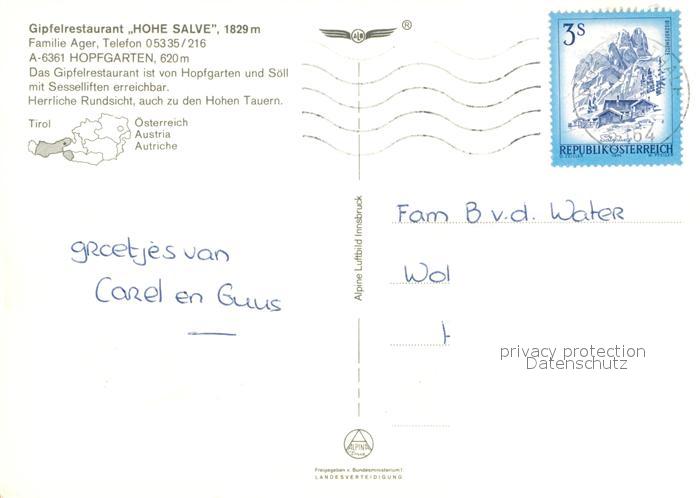 Gipfelrestaurant „HOHE SALVE", 1829 m
Familie Ager, Telefon 0 53 35 / 216
A-6361 HOPFGARTEN, 620 m
Das Gipfelrestaurant ist von Hopfgarten und Söll
mit Sesselliften erreichbar.
Herrliche Rundsicht, auch zu den Hohen Tauern.
Tirol
Österreich
Austria
Autriche
groetjes van
Carel en Guus
Alpine Luftbild Innsbruck
ALPINA
Druck
Freigegeben v. Bundesministerium f.
LANDESVERTEIDIGUNG
®
3S
REPUBLIK ÖSTERREICH
64
Fam B v.d. Water
Wol
H
privacy protection
Datenschutz